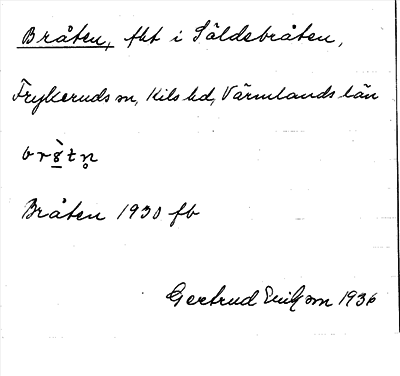 Bråten, fht i Säldebråten,
Frykeruds sn, Kils hd, Värmlands län
brö̀tn̥
Bråten 1930 fb
Gertrud Ericson 1936